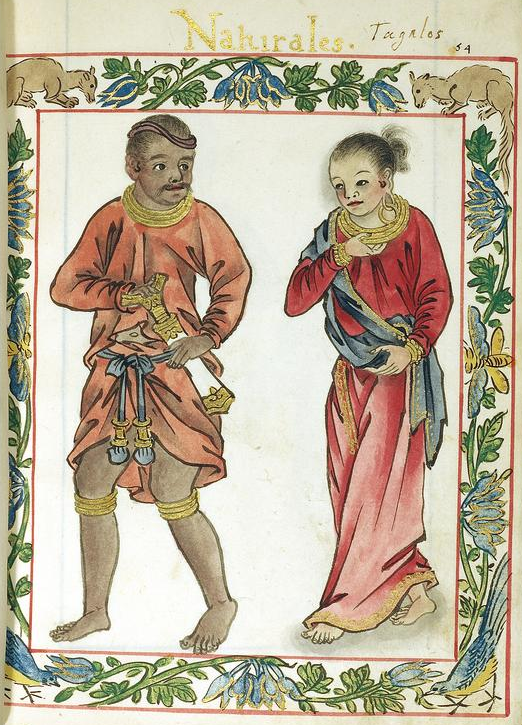 Naturales. Tagalos
54